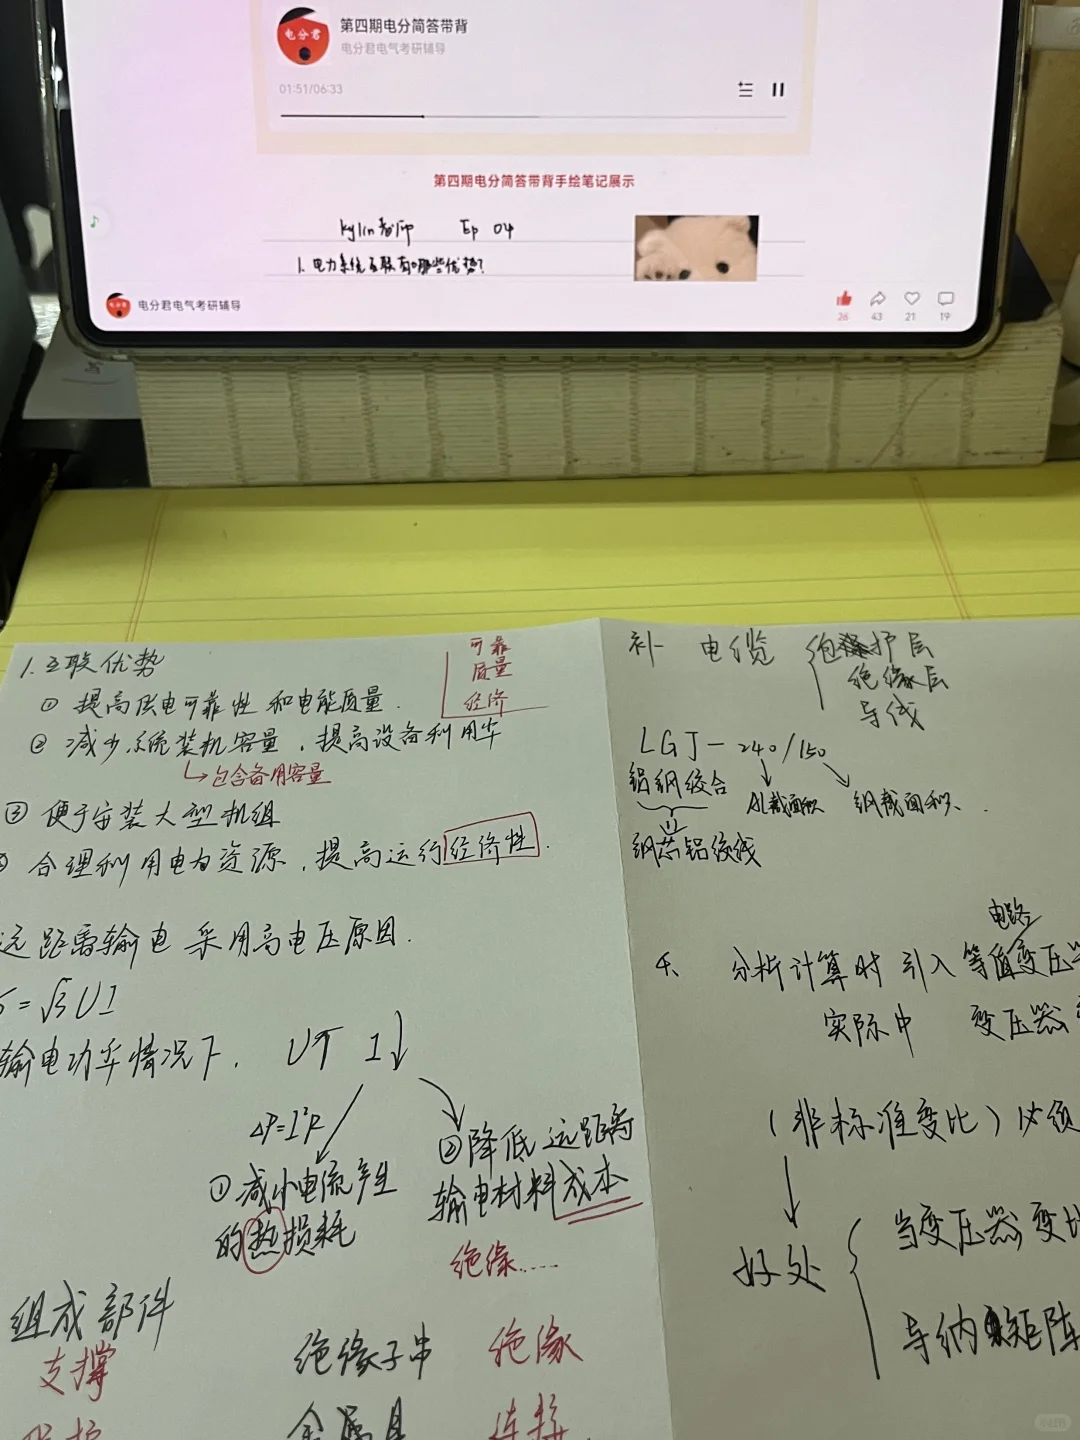 电分君
第四期电分简答带背
电分君电气考研辅导
01:51/06:33
第四期电分简答带背手绘笔记展示
kylin老师 Ep 04
1. 电力系统互联有哪些优势?
电分君电气考研辅导
26 43 21 19
1. 互联优势
可靠
质量
经济
① 提高供电可靠性和电能质量.
② 减少系统装机容量,提高设备利用率
↳包含备用容量
③ 便于安装大型机组
合理利用电力资源,提高运行经济性.
远距离输电采用高电压原因.
S=√3UI
输电功率情况下, U↑ I↓
ΔP=I²R
① 减小电流产生
的热损耗
② 降低远距离
输电材料成本
绝缘……
组成部件
支撑 绝缘子串 绝缘
保护 金属具 连接
补 电缆 包护层
绝缘层
导线
LGJ-240/150
铝钢绞合 AL截面积 钢截面积.
钢芯铝绞线
电路
分析计算时引入等值变压器
实际中 变压器
(非标准变比)必须
好处 当变压器变比
导纳矩阵